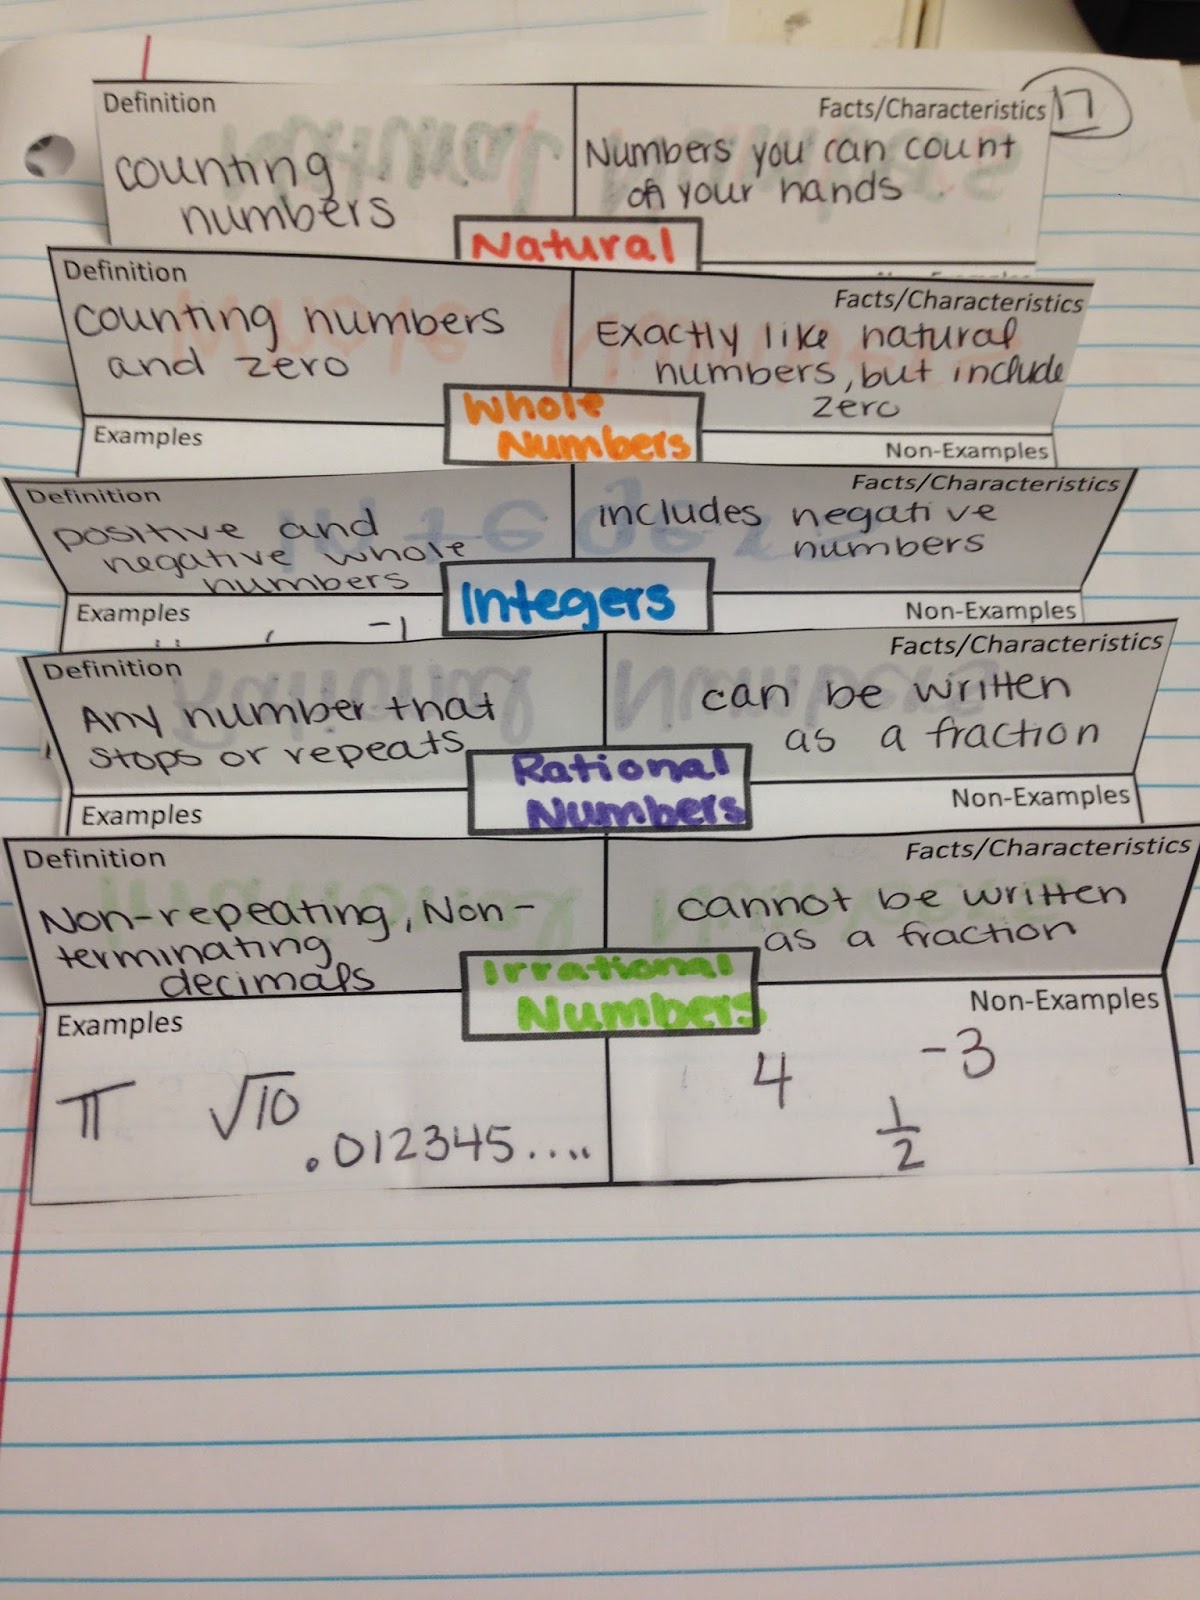 17
Definition
Facts/Characteristics
counting
numbers
Numbers you can count
on your hands
Natural
Definition
Facts/Characteristics
counting numbers
and zero
Exactly like natural
numbers, but include
zero
Whole
Numbers
Examples
Non-Examples
Definition
Facts/Characteristics
positive and
negative whole
numbers
includes negative
numbers
Integers
Examples
Non-Examples
-1
Definition
Facts/Characteristics
Any number that
stops or repeats
can be written
as a fraction
Rational
Numbers
Examples
Non-Examples
Definition
Facts/Characteristics
Non-repeating, Non-
terminating
decimals
cannot be written
as a fraction
Irrational
Numbers
Examples
Non-Examples
π √10
.012345....
4 -3
1/2